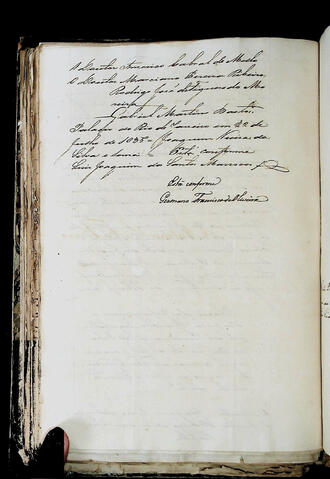 O Director Francisco Cabral de Mello
O Director Marciano Pereira Ribeiro
Rodrigo José de Figueredo Mo
reira
Gabriel Martins Bastos
Palacio do Rio de Janeiro em 22 de
Julho de 1835 = Joaquim Vieira da
Silva e Souza = Está conforme
Luis Joaquim dos Santos Marrocos
Está conforme
Germano Francisco de Oliveira